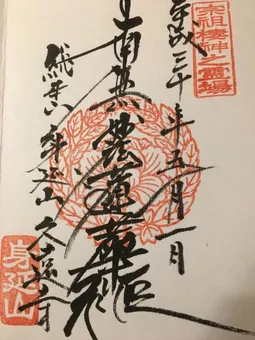 宗祖棲神之霊場
平成三十年五月一日
南無妙法蓮華経
総本山身延山久遠寺
身延山